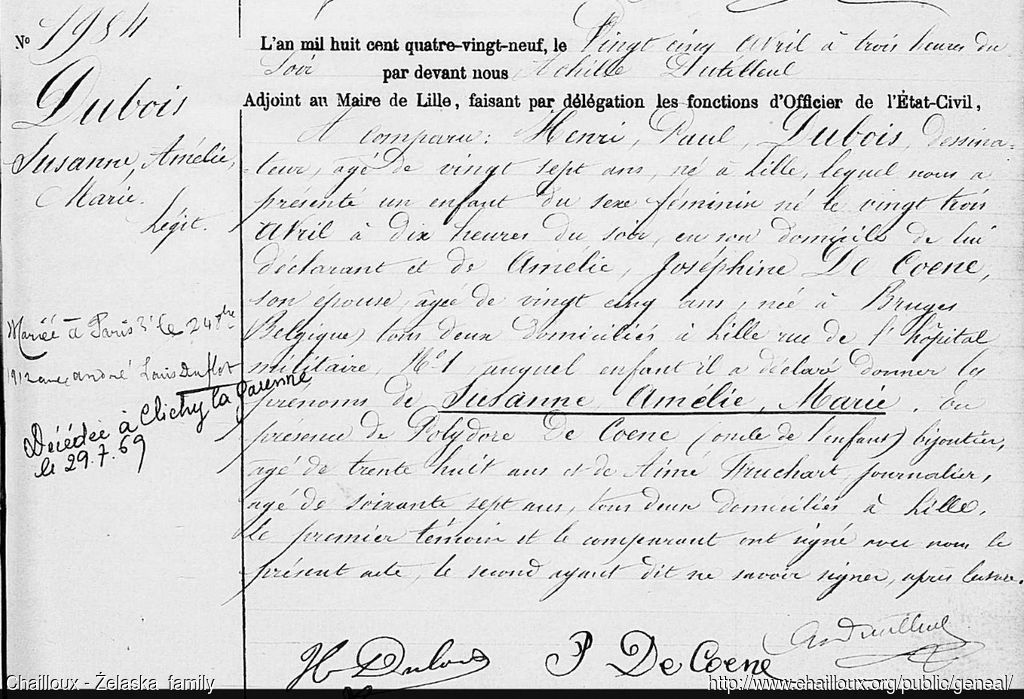 N° 1984
Dubois
Susanne, Amélie,
Marie.
Légit.
Mariée à Paris 3e le 24 8bre
1912 avec André Louis Duflot
Décédée à Clichy la Garenne
le 29.7.69
L'an mil huit cent quatre-vingt-neuf, le Vingt cinq Avril à trois heures du
Soir par devant nous Achille Dutilleul
Adjoint au Maire de Lille, faisant par délégation les fonctions d'Officier de l'État-Civil,
A comparu: Henri, Paul, Dubois, dessina-
-teur, agé de vingt sept ans, né à Lille, lequel nous a
présenté un enfant du sexe féminin né le vingt trois
Avril à dix heures du soir, en son domicile de lui
déclarant et de Amélie, Joséphine De Coene,
son épouse, âgée de vingt cinq ans, née à Bruges
Belgique) tous deux domiciliés à Lille rue de l'hôpital
militaire, N° 1, auquel enfant il a déclaré donner les
prénoms de Susanne Amélie, Marie. En
présence de Polydore De Coene (oncle de l'enfant) bijoutier,
agé de trente huit ans et de Aimé Truchart, journalier,
agé de soixante sept ans, tous deux domiciliés à Lille.
Le premier témoin et le comparant ont signé avec nous le
présent acte, le second ayant dit ne savoir signer, après lecture.
H Dubois P De Coene
Chailloux - Želaska family http://www.chailloux.org/public/geneal/